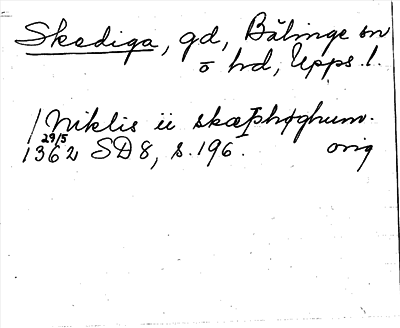 Skediga, gd, Bälinge sn
o hd, Upps. l.
/Niklis ii skæþhøghum.
29/5
1362 SD 8, s. 196. orig